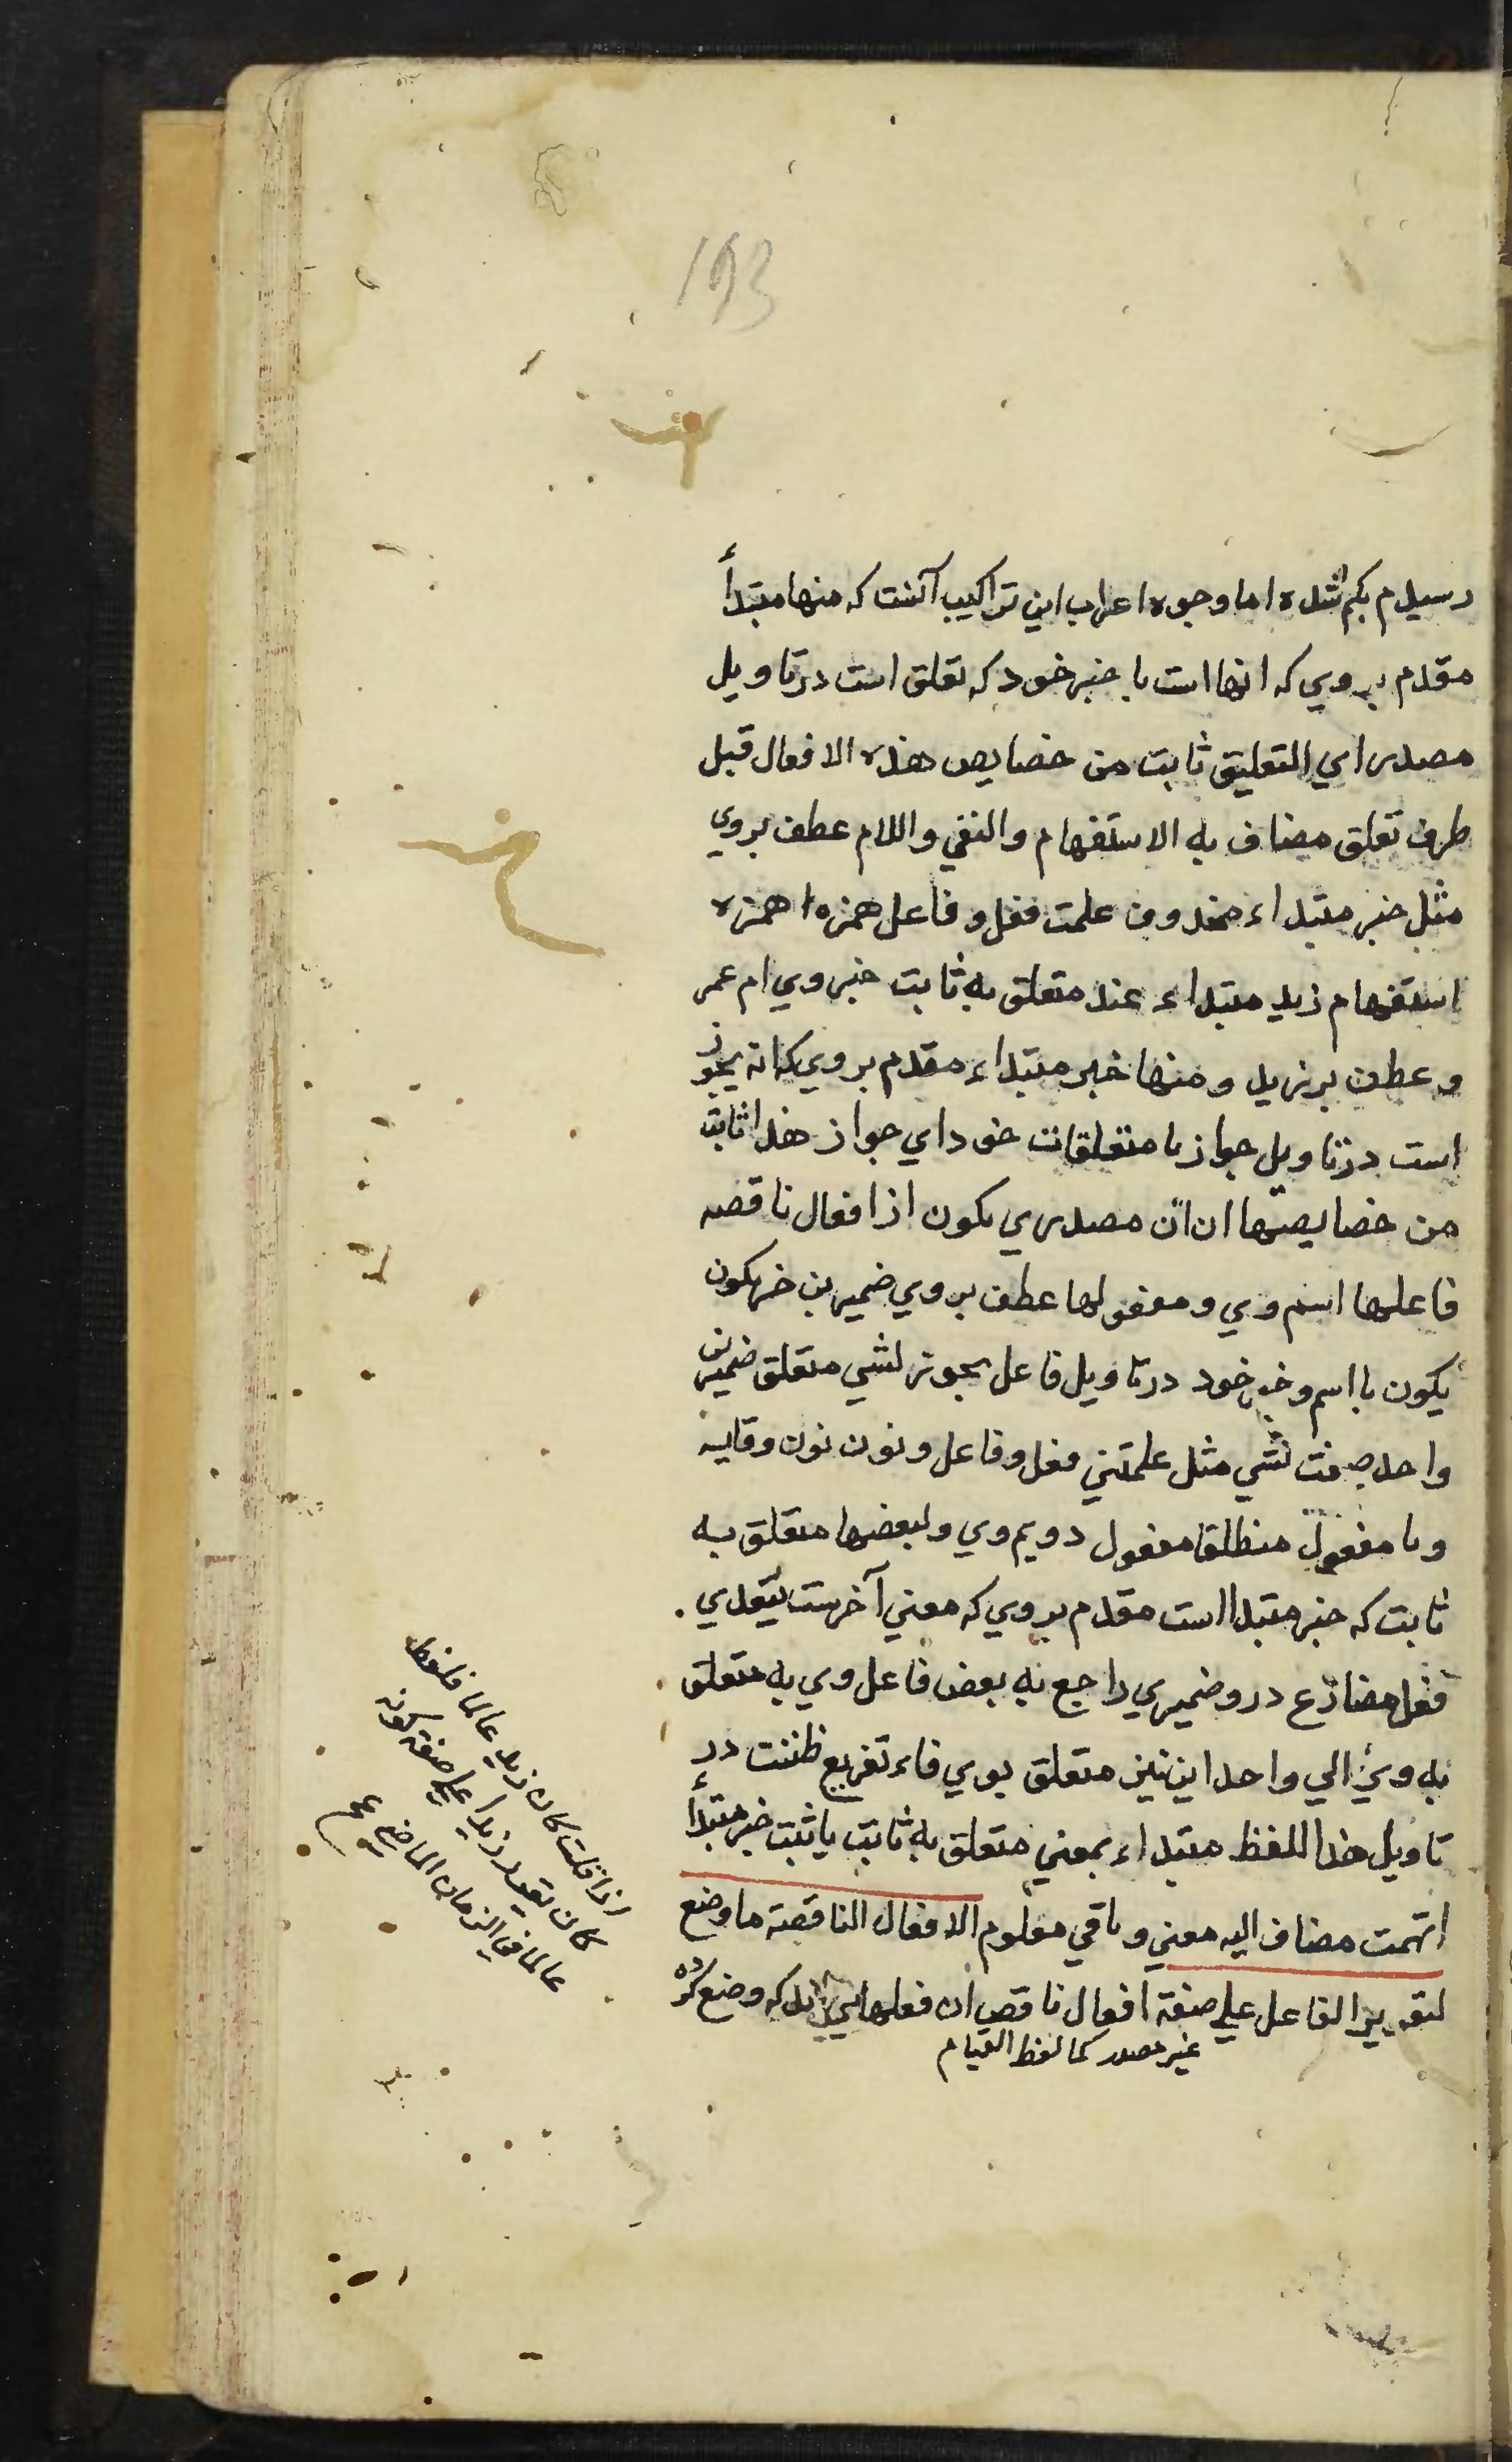 193
رسیدم بکم شده اما وجوه اعراب این تراکیب آنست که منها مبتدأ
مقدم بروی که انها است با خبر خود که تعلق است در تاویل
مصدر ای التعلیق ثابت من خصایص هذه الافعال قبل
ظرف تعلق مضاف به الاستفهام والنفی واللام عطف بروی
مثل خبر مبتداء محذوف علمت فعل و فاعل همزه ا همزه
استفهام زید مبتداء عند متعلق به ثابت خبر وی ام عمر
و عطف بر زید و منها خبر مبتداء مقدم بروی که انه یجوز
است در تاویل جواز با متعلقات خود ای جواز هذا ثابت
من خصایصها ان ان مصدری یکون از افعال ناقصه
فاعلها اسم وی و مفعولها عطف بروی ضمیرین خبر یکون
یکون با اسم و خبر خود در تاویل فاعل یجوز لشی متعلق ضمیرین
واحد صفت لشی مثل علمتنی فعل و فاعل و نون نون وقایه
و یا مفعول منطلقا مفعول دویم وی ولبعضها متعلق به
ثابت که خبر مبتدا است مقدم بروی که معنی آخرست یتعدی
فعل مضارع درو ضمیری راجع به بعض فاعل وی به متعلق
به وی الی واحد این نیز متعلق بوی فاء تفریع ظننت در
تاویل هذا اللفظ مبتداء بمعنی متعلق به ثابت یا ثبت خبر مبتدأ
اتهمت مضاف الیه معنی و باقی معلوم الافعال الناقصة ما وضع
لتقریر الفاعل علی صفة افعال ناقص ان فعلهایی اند که وضع کرده
غیر مصدر کما لفظ القیام
اذا قلت کان زید عالما فلفظ
کان یقرر زیدا علی صفة کونه
عالما فی الزمان الماضی